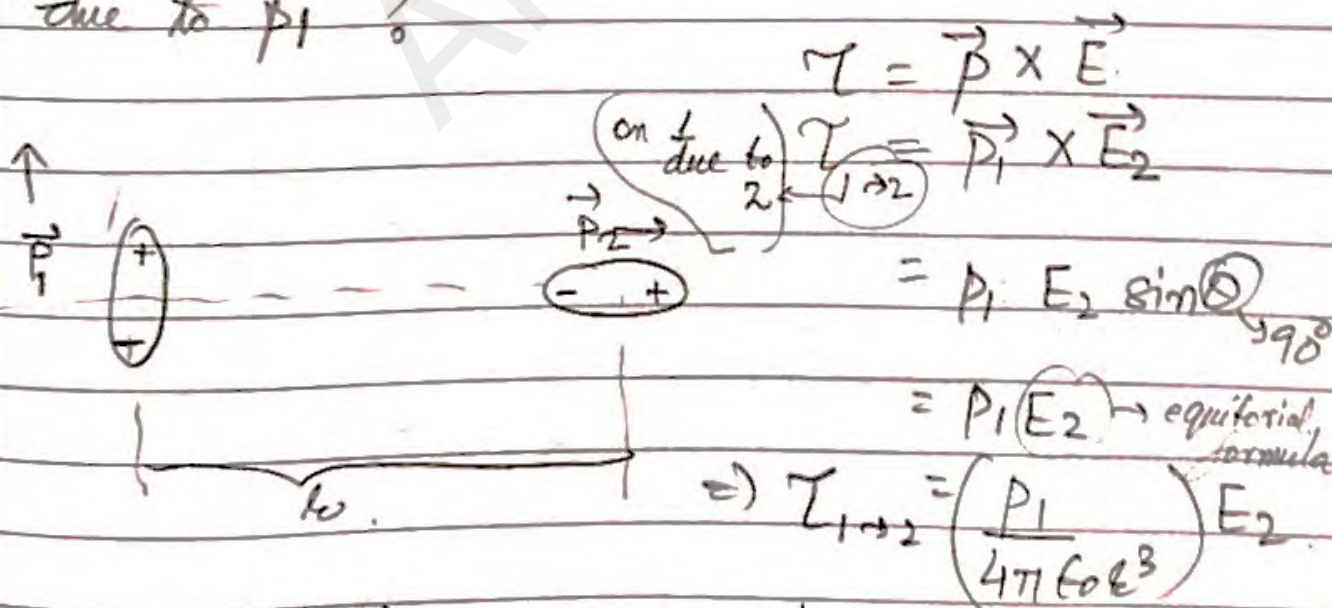 due to p1 :
τ = p⃗ × E⃗.
(on 1 due to 2) τ 1→2 = p⃗1 × E⃗2
↑ P⃗1
+
+
P⃗2 →
- +
= p1 E2 sinθ → 90°
= P1 E2 → equitorial formula
r.
=) τ1→2 = (P1 / 4π ε0 r³) E2.